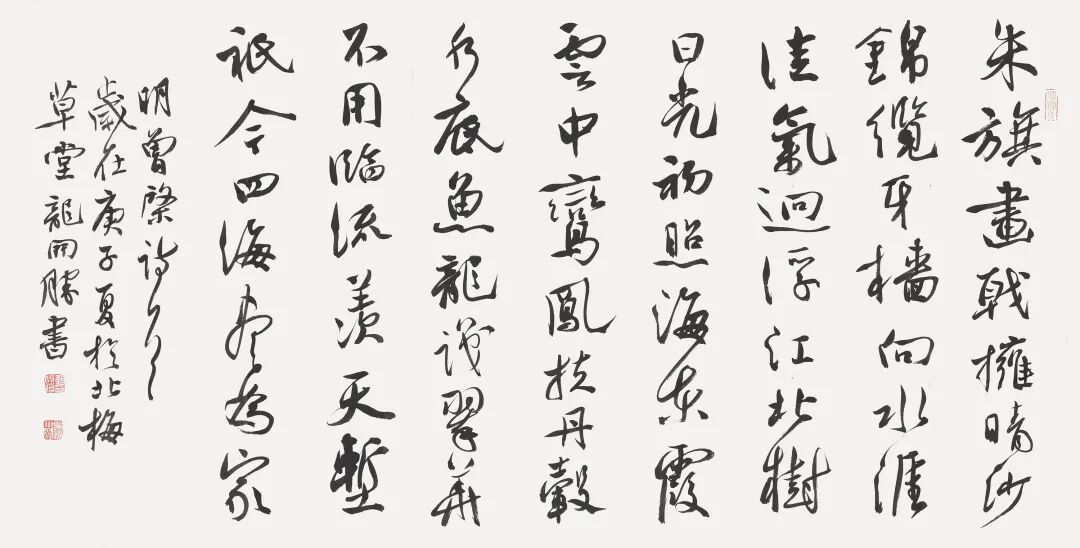 朱旗畫戟擁晴沙
錦纜牙檣向水涯
佳氣迥浮江北樹
日光初照海東霞
雲中鸞鳳扶丹轂
水底魚龍識翠華
不用臨流羨天塹
祇今四海盡為家
明曾棨詩一首
歲在庚子夏於北梅
草堂龍開勝書